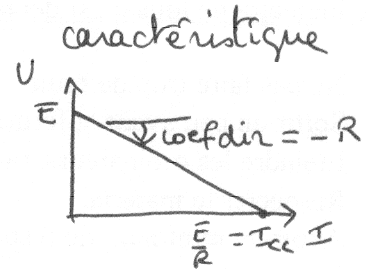 caractéristique
U
E
coefdir = - R
E/R = Icc I